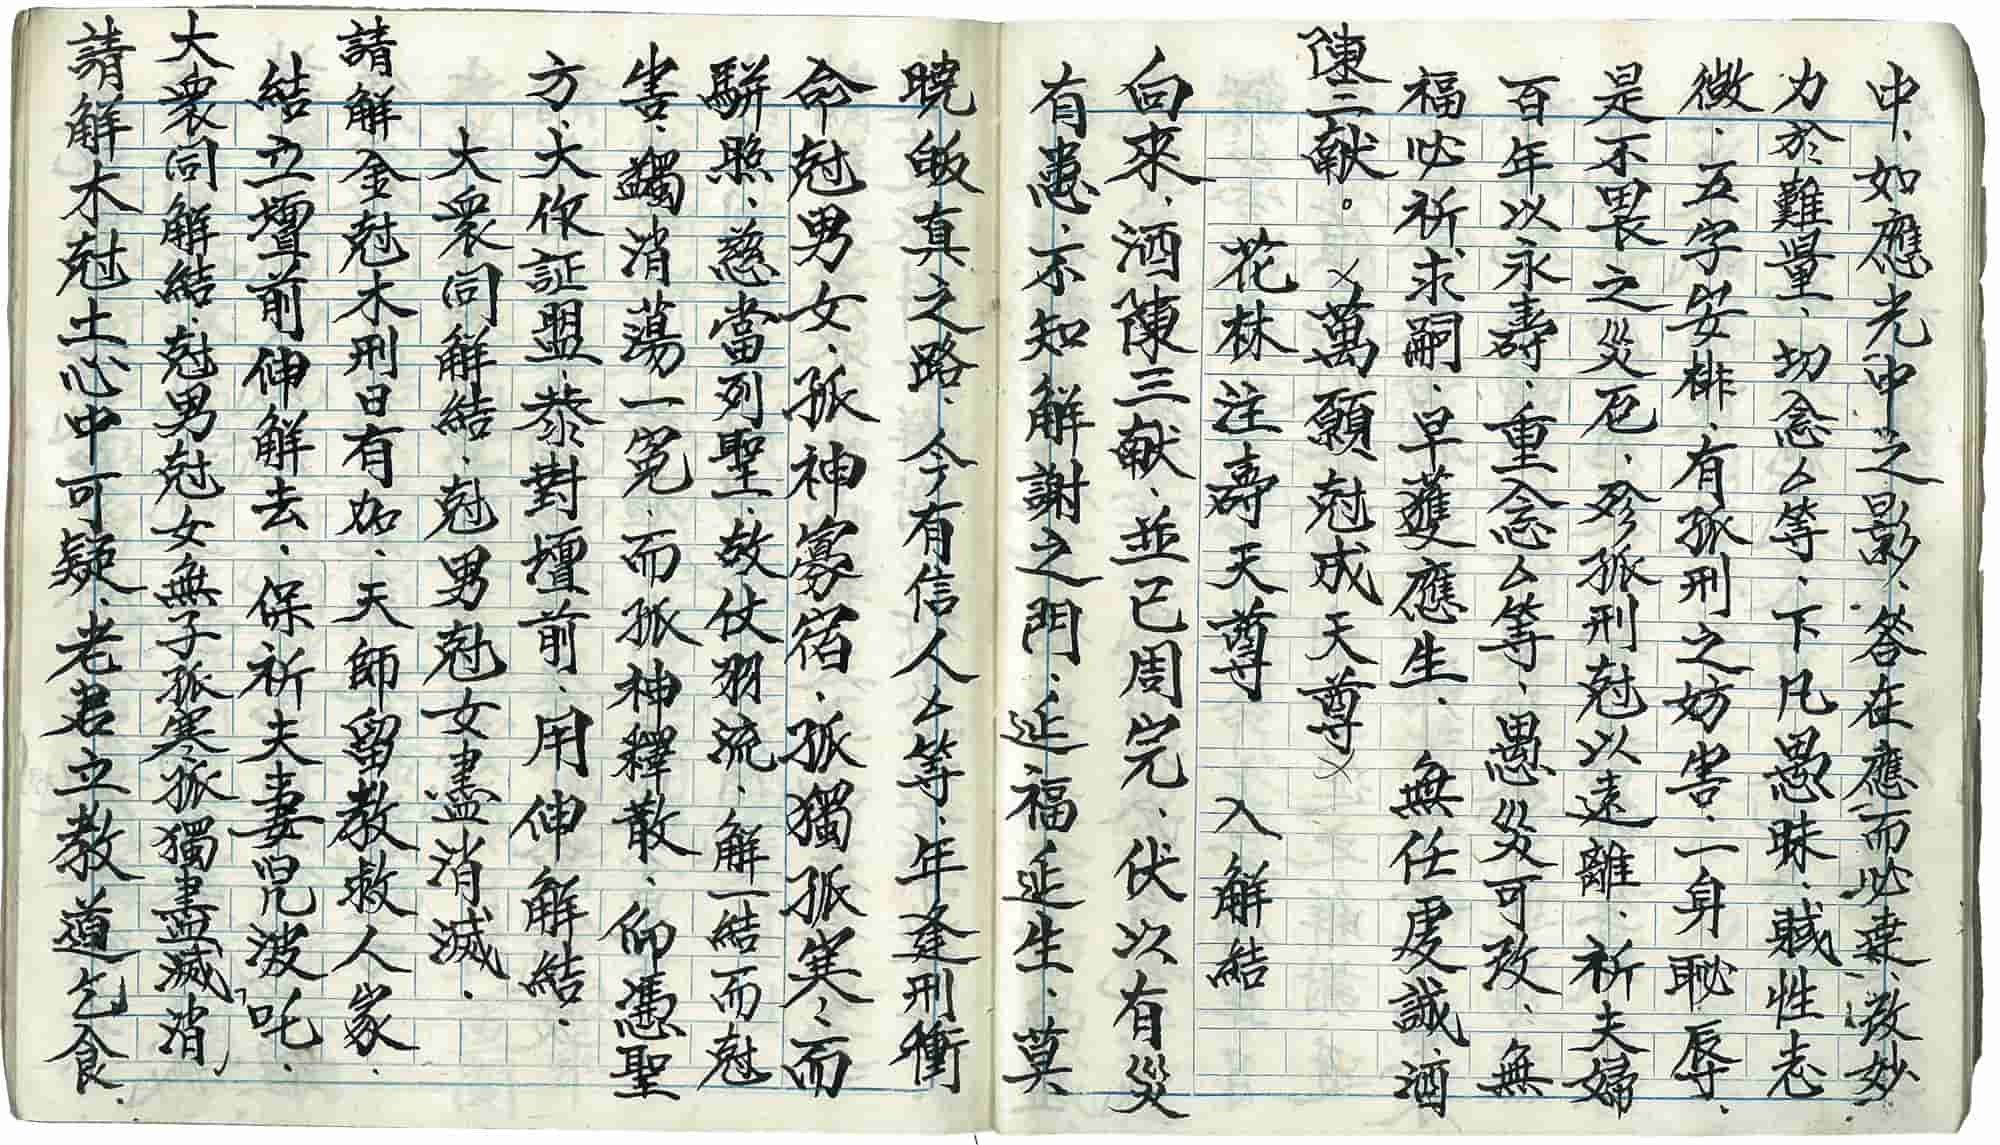 中、如應光中之影、答在應而必棄、激妙
力於難量、切念厶等、下凡愚昧、賊性志
徴、五字安排、有孤刑之妨害、一身恥辱、
是不畏之災厄、殄孤刑尅以遠離、祈夫婦
百年以永壽、重念厶等、愚災可改、無
福必祈求嗣、早獲應生、無任虔誠酒
陳二献。萬願尅成天尊
花林注壽天尊 入解結
向來、酒陳三献、並已周完、伏以有災
有患、不知解謝之門、延福延生、莫
曉皈真之路、今有信人厶等、年逢刑衝
命尅男女、孤神寡宿、孤獨孤寒、而
駢照、慈當列聖、故仗羽流、解一結而尅
害、蠲消蕩一冤、而孤神釋散、仰憑聖
方、大作証盟、恭對壇前、用伸解結、
大衆同解結、尅男尅女盡消滅、
請解金尅木刑日有如、天師留教救人家、
結立壇前伸解去、保祈夫妻咒波吒、
大衆同解結、尅男尅女無子孤寒孤獨盡滅消
請解木尅土心中可疑、老君立教道乞食、